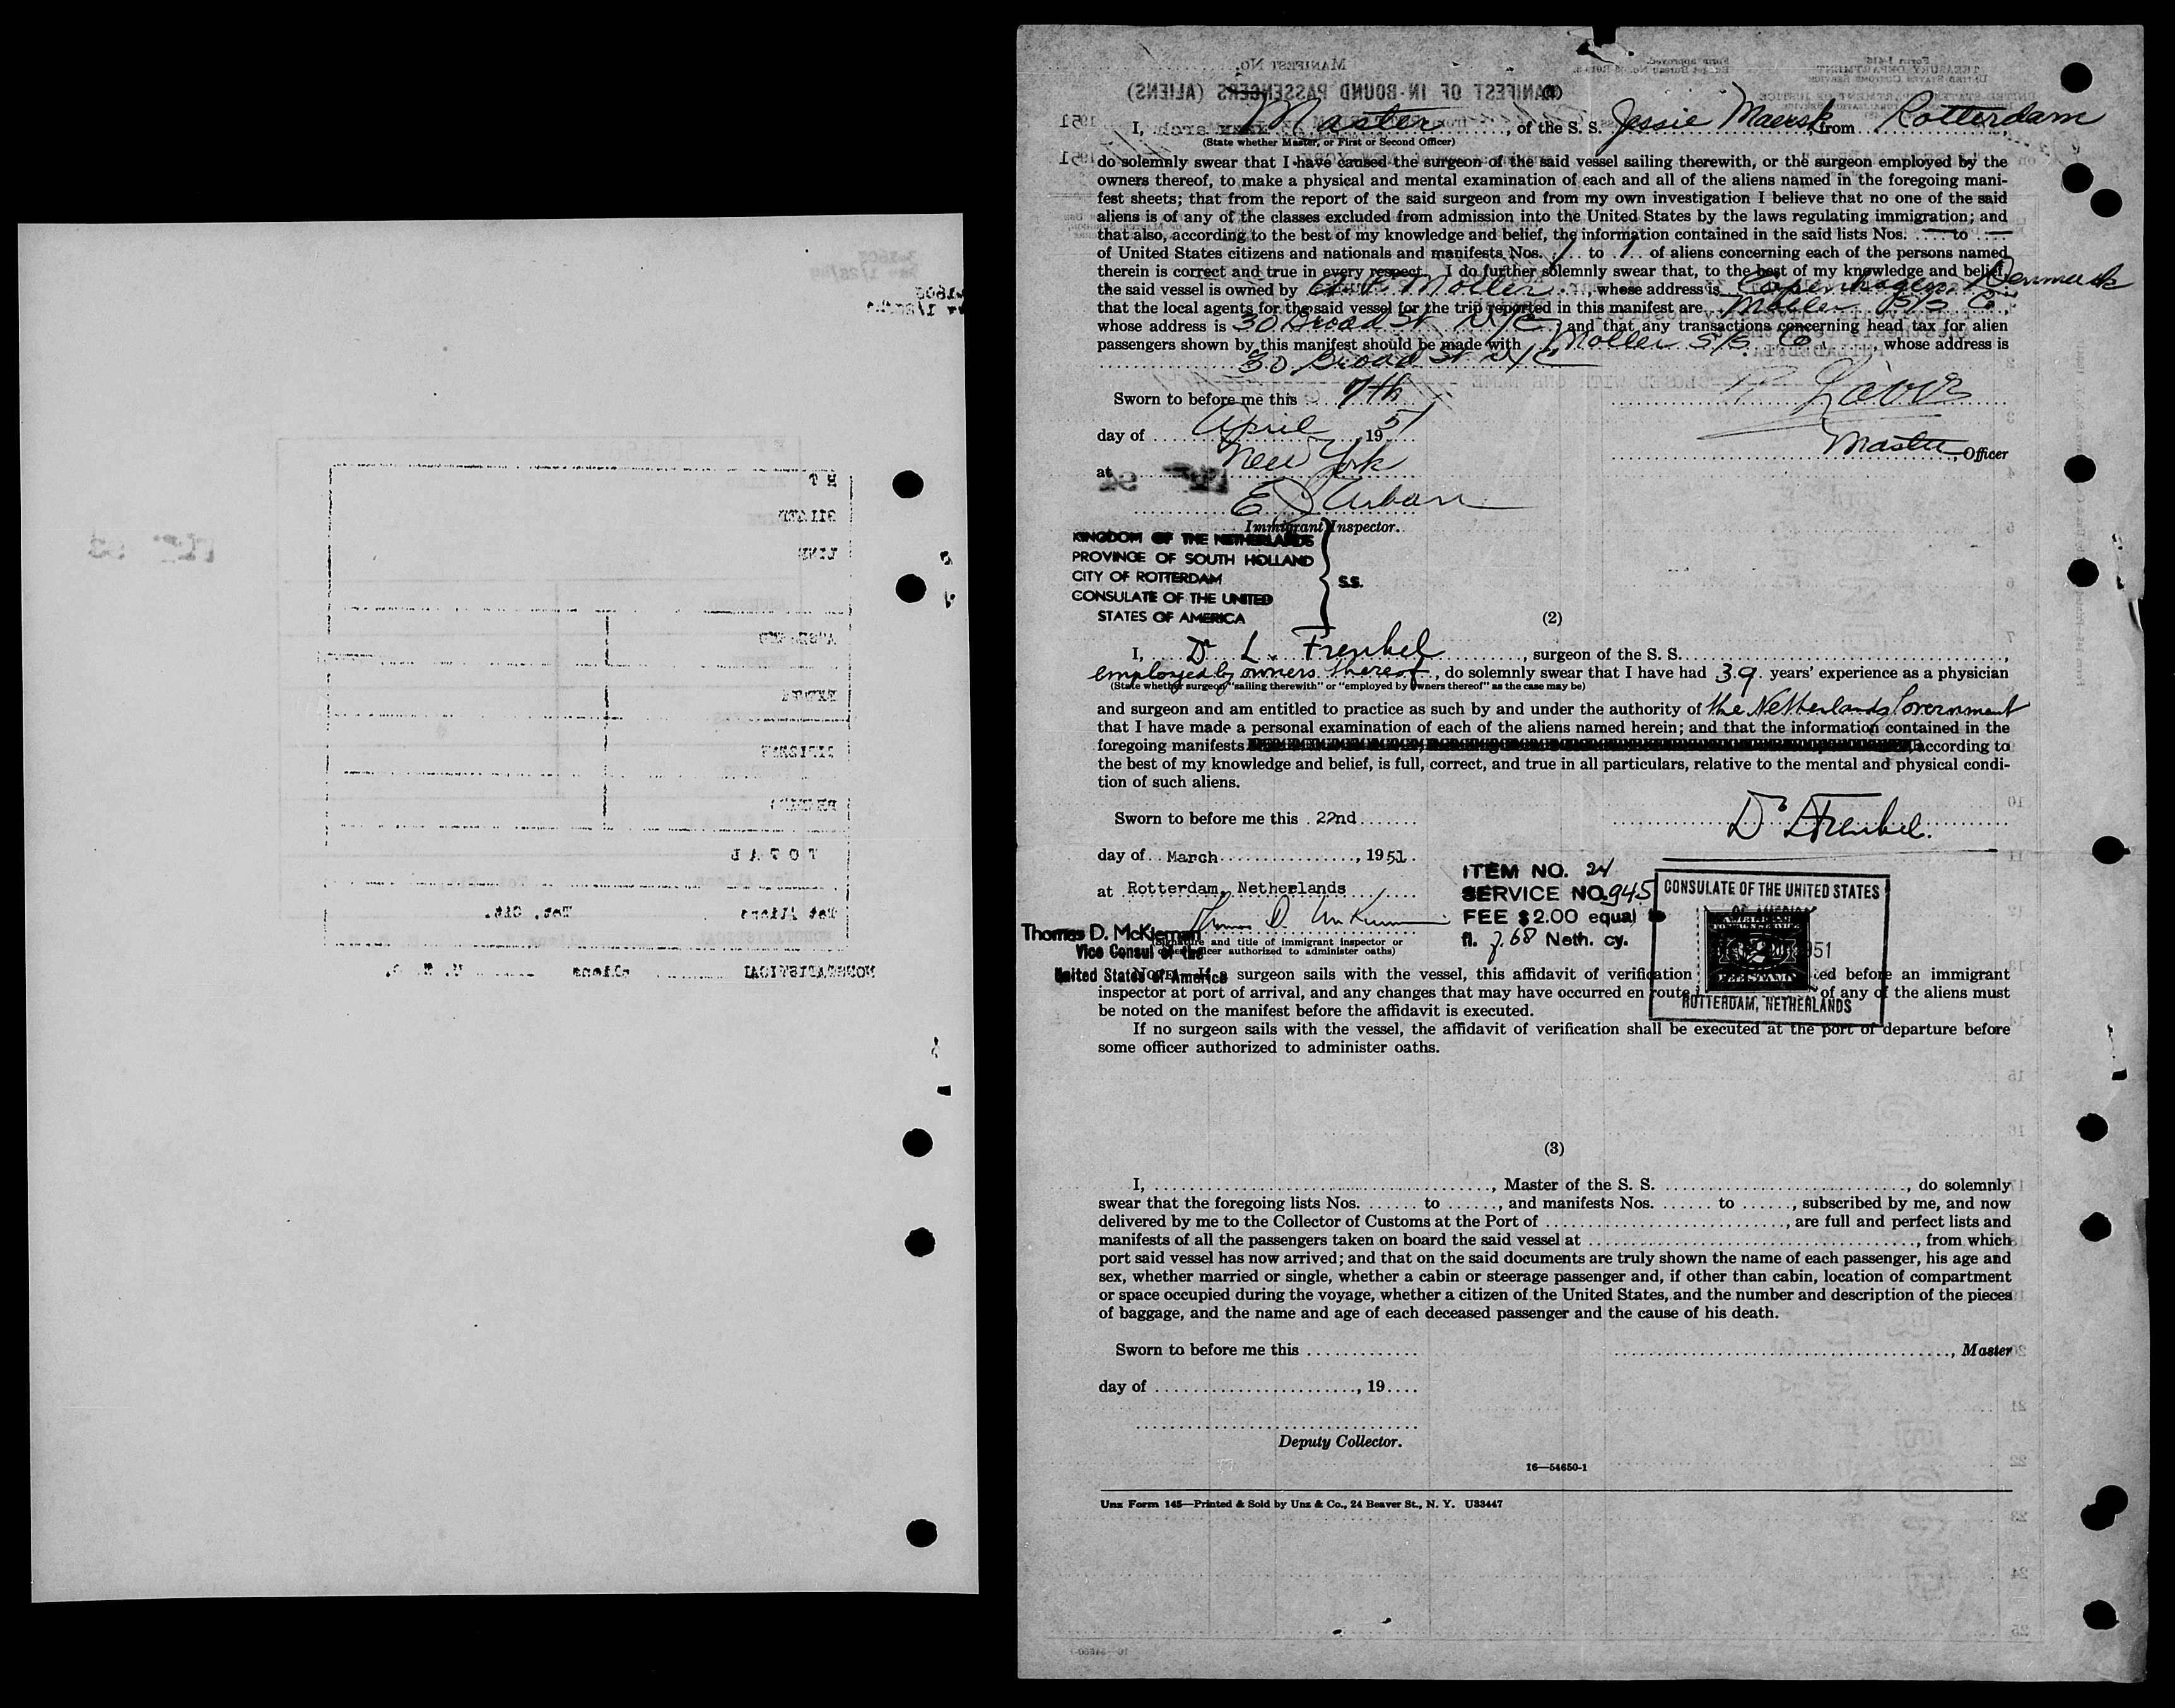 (1)
I, Master, of the S. S. Jessie Maersk from Rotterdam,
(State whether Master, or First or Second Officer)
do solemnly swear that I have caused the surgeon of the said vessel sailing therewith, or the surgeon employed by the
owners thereof, to make a physical and mental examination of each and all of the aliens named in the foregoing mani-
fest sheets; that from the report of the said surgeon and from my own investigation I believe that no one of the said
aliens is of any of the classes excluded from admission into the United States by the laws regulating immigration; and
that also, according to the best of my knowledge and belief, the information contained in the said lists Nos. — to —
of United States citizens and nationals and manifests Nos. 1 to 1 of aliens concerning each of the persons named
therein is correct and true in every respect. I do further solemnly swear that, to the best of my knowledge and belief,
the said vessel is owned by A. P. Moller, whose address is Copenhagen, Denmark
that the local agents for the said vessel for the trip reported in this manifest are Moller S/S Co.,
whose address is 30 Broad St NYC; and that any transactions concerning head tax for alien
passengers shown by this manifest should be made with Moller S/S Co., whose address is
30 Broad St NYC
Sworn to before me this 7th
day of April, 1951
Master, Officer
at New York
E J Urban
Immigrant Inspector.
KINGDOM OF THE NETHERLANDS
PROVINCE OF SOUTH HOLLAND
CITY OF ROTTERDAM
S.S.
CONSULATE OF THE UNITED
STATES OF AMERICA
(2)
I, Dr L. Frenkel, surgeon of the S. S.
employed by owners thereof, do solemnly swear that I have had 39 years' experience as a physician
(State whether surgeon "sailing therewith" or "employed by owners thereof" as the case may be)
and surgeon and am entitled to practice as such by and under the authority of the Netherlands Government
that I have made a personal examination of each of the aliens named herein; and that the information contained in the
foregoing manifests according to
the best of my knowledge and belief, is full, correct, and true in all particulars, relative to the mental and physical condi-
tion of such aliens.
Sworn to before me this 22nd
Dr LFrenkel.
day of March, 1951
at Rotterdam, Netherlands
ITEM NO. 24
SERVICE NO. 945
FEE $2.00 equal to
fl. 7.68 Neth. cy.
CONSULATE OF THE UNITED STATES
OF AMERICA
1951
ROTTERDAM, NETHERLANDS
Thomas D. McKiernan
Vice Consul of the
United States of America
(Signature and title of immigrant inspector or
other officer authorized to administer oaths)
NOTE.—If a surgeon sails with the vessel, this affidavit of verification ted before an immigrant
inspector at port of arrival, and any changes that may have occurred en route i of any of the aliens must
be noted on the manifest before the affidavit is executed.
If no surgeon sails with the vessel, the affidavit of verification shall be executed at the port of departure before
some officer authorized to administer oaths.
(3)
I, , Master of the S. S. , do solemnly
swear that the foregoing lists Nos. to , and manifests Nos. to , subscribed by me, and now
delivered by me to the Collector of Customs at the Port of , are full and perfect lists and
manifests of all the passengers taken on board the said vessel at , from which
port said vessel has now arrived; and that on the said documents are truly shown the name of each passenger, his age and
sex, whether married or single, whether a cabin or steerage passenger and, if other than cabin, location of compartment
or space occupied during the voyage, whether a citizen of the United States, and the number and description of the pieces
of baggage, and the name and age of each deceased passenger and the cause of his death.
Sworn to before me this
, Master
day of , 19
Deputy Collector.
16—54650-1
Unz Form 145—Printed & Sold by Unz & Co., 24 Beaver St., N. Y. U33447